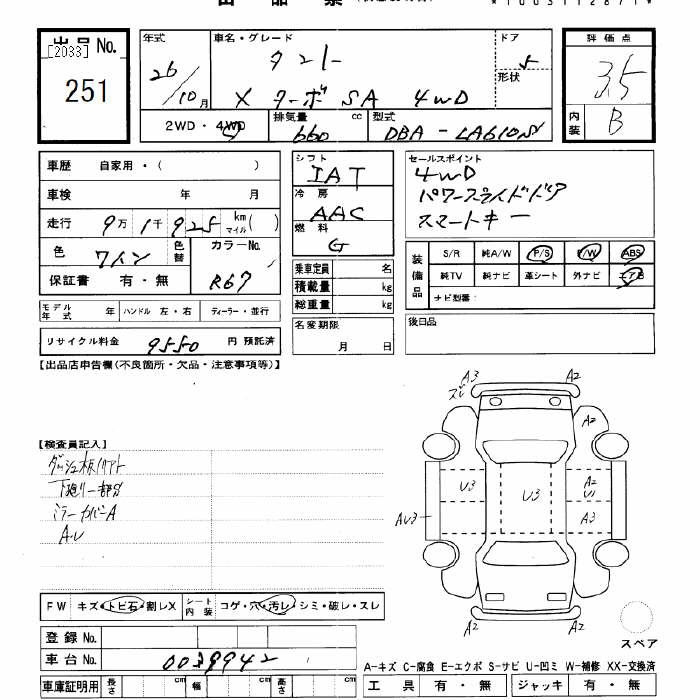 出品票
*1003112871*
出品 No. 年式 車名・グレード ドア 評価点
[2033] 26/10月 タント 5 3.5
251 X ターボ SA 4WD 形状
2WD・4WD 排気量 660 cc 型式 DBA-LA610S 内装 B
車歴 自家用・( )
車検 年 月
走行 9万1千925 km マイル( )
色 ワイン 色替 カラーNo. R67
保証書 有・無
シフト IAT
冷房 AAC
燃料 G
乗車定員 名
積載量 kg
総重量 kg
セールスポイント
4WD
パワースライドドア
スマートキー
装備品 S/R 純A/W P/S P/W ABS
純TV 純ナビ 革シート 外ナビ エアB
ナビ型番:
モデル年式 年 ハンドル 左・右 ディーラー・並行
名変期限 月 日
後日品
リサイクル料金 9550 円 預託済
【出品店申告欄(不良箇所・欠品・注意事項等)】
【検査員記入】
下廻り一部サビ
ミラーカバーA
AU
A3 A2
スレ
A2
U3 U3 A2
U1
AU3 A3
A2 A2
スペア
FW キズ・トビ石・割レX シート内装 コゲ・穴・汚レ・シミ・破レ・スレ
登録 No.
車台 No. 0039942
A-キズ C-腐食 E-エクボ S-サビ U-凹ミ W-補修 XX-交換済
車庫証明用 長さ cm 幅 cm 高さ cm 工具 有・無 ジャッキ 有・無